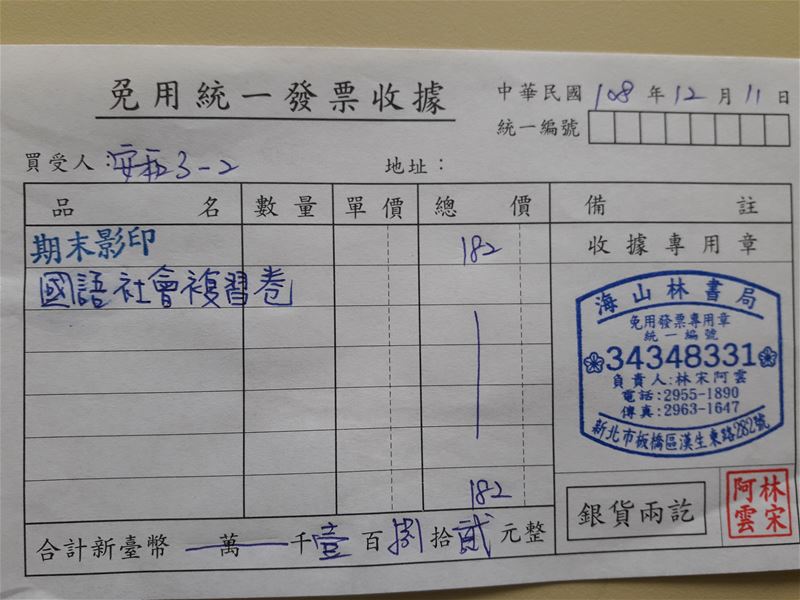 免用統一發票收據
中華民國 108 年 12 月 11 日
統一編號
買受人 安和3-2 地址：
品名 數量 單價 總價 備註
期末影印 182 收據專用章
國語社會複習卷
海山林書局
免用發票專用章
統一編號
34348331
負責人:林宋阿雲
電話:2955-1890
傳真:2963-1647
新北市板橋區漢生東路282號
182
銀貨兩訖
林宋阿雲
合計新臺幣 萬 千壹百捌拾貳元整